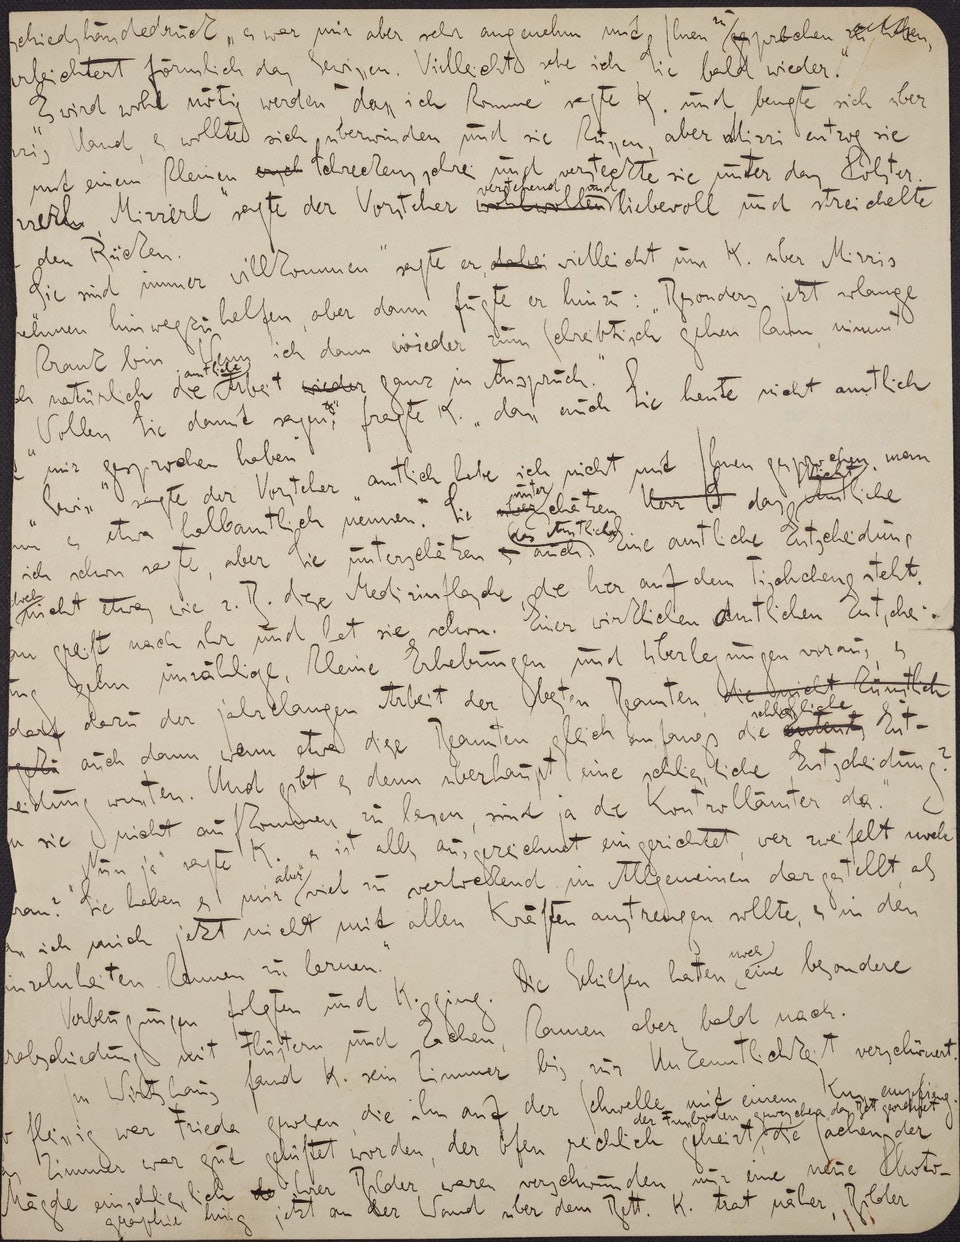 schiedshändedruck „es war mir aber sehr angenehm mit Ihnen zu sprechen
erleichtert förmlich das Gewissen. Vielleicht sehe ich Sie bald wieder."
„Es wird wohl nötig werden daß ich komme" sagte K. und beugte sich über
Hand, er wollte sich überwinden und sie küssen, aber Mizzi entzog sie
mit einem kleinen Schreckensschrei und versteckte sie unter das Polster.
Mizzerl" sagte der Vorsteher verstehend und liebevoll und streichelte
den Rücken.
Sie sind immer willkommen" sagte er, dabei vielleicht um K. über Mizzis
nehmen hinwegzuhelfen, aber dann fügte er hinzu: „Besonders jetzt solange
krank bin. Wenn ich dann wieder zum Schreibtisch gehen kann, nimmt
natürlich die amtliche Arbeit wieder ganz in Anspruch."
„Wollen Sie damit sagen" fragte K. „daß auch Sie heute nicht amtlich
mir gesprochen haben"
„Gewiß" sagte der Vorsteher „amtlich habe ich nicht mit Ihnen gesprochen, man
es etwa halbamtlich nennen." Sie unterschätzen das Nichtamtliche
ich schon sagte, aber Sie unterschätzen auch das Amtliche. Eine amtliche Entscheidung
nicht etwas wie z. B. diese Medizinflasche, die hier auf dem Tischchen steht.
greift nach ihr und hat sie schon. Einer wirklichen amtlichen Entschei-
ung gehn unzählige, kleine Erhebungen und Überlegungen voraus, es
darf dazu der jahrelangen Arbeit der besten Beamten, die nicht
auch dann wenn etwa diese Beamten gleich anfangs die schließliche Ent-
eidung wußten. Und gibt es denn überhaupt eine schließliche Entscheidung?
sie nicht aufkommen zu lassen, sind ja die Kontrollämter da."
„Nun ja" sagte K. „es ist alles ausgezeichnet eingerichtet, wer zweifelt noch
ran? Sie haben es mir aber viel zu verlockend im Allgemeinen dargestellt, als
ich mich jetzt nicht mit allen Kräften anstrengen sollte, es in den
inzelnheiten kennen zu lernen."
Verbeugungen folgten und K. ging. Die Gehilfen hatten noch eine besondere
rabschiedung mit Flüstern und Lachen, kamen aber bald nach.
Im Wirtshaus fand K. sein Zimmer bis zur Unkenntlichkeit verschönert.
fleißig war Frieda gewesen, die ihn auf der Schwelle mit einem Kuß empfieng.
Zimmer war gut gelüftet worden, der Ofen reichlich geheizt, der Fußboden gewaschen, das Bett geordnet die Sachen der
Mägde einschließlich ihrer Bilder waren verschwunden nur eine neue Photo-
graphie hing jetzt an der Wand über dem Bett. K. trat näher, Bilder